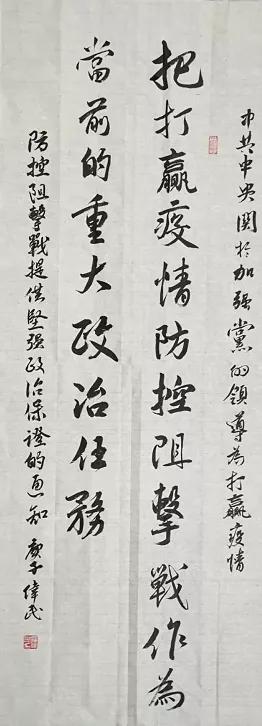 中共中央關於加强黨的領導為打贏疫情
把打贏疫情防控阻擊戰作為
當前的重大政治任務
防控阻擊戰提供堅强政治保證的通知 庚子偉民